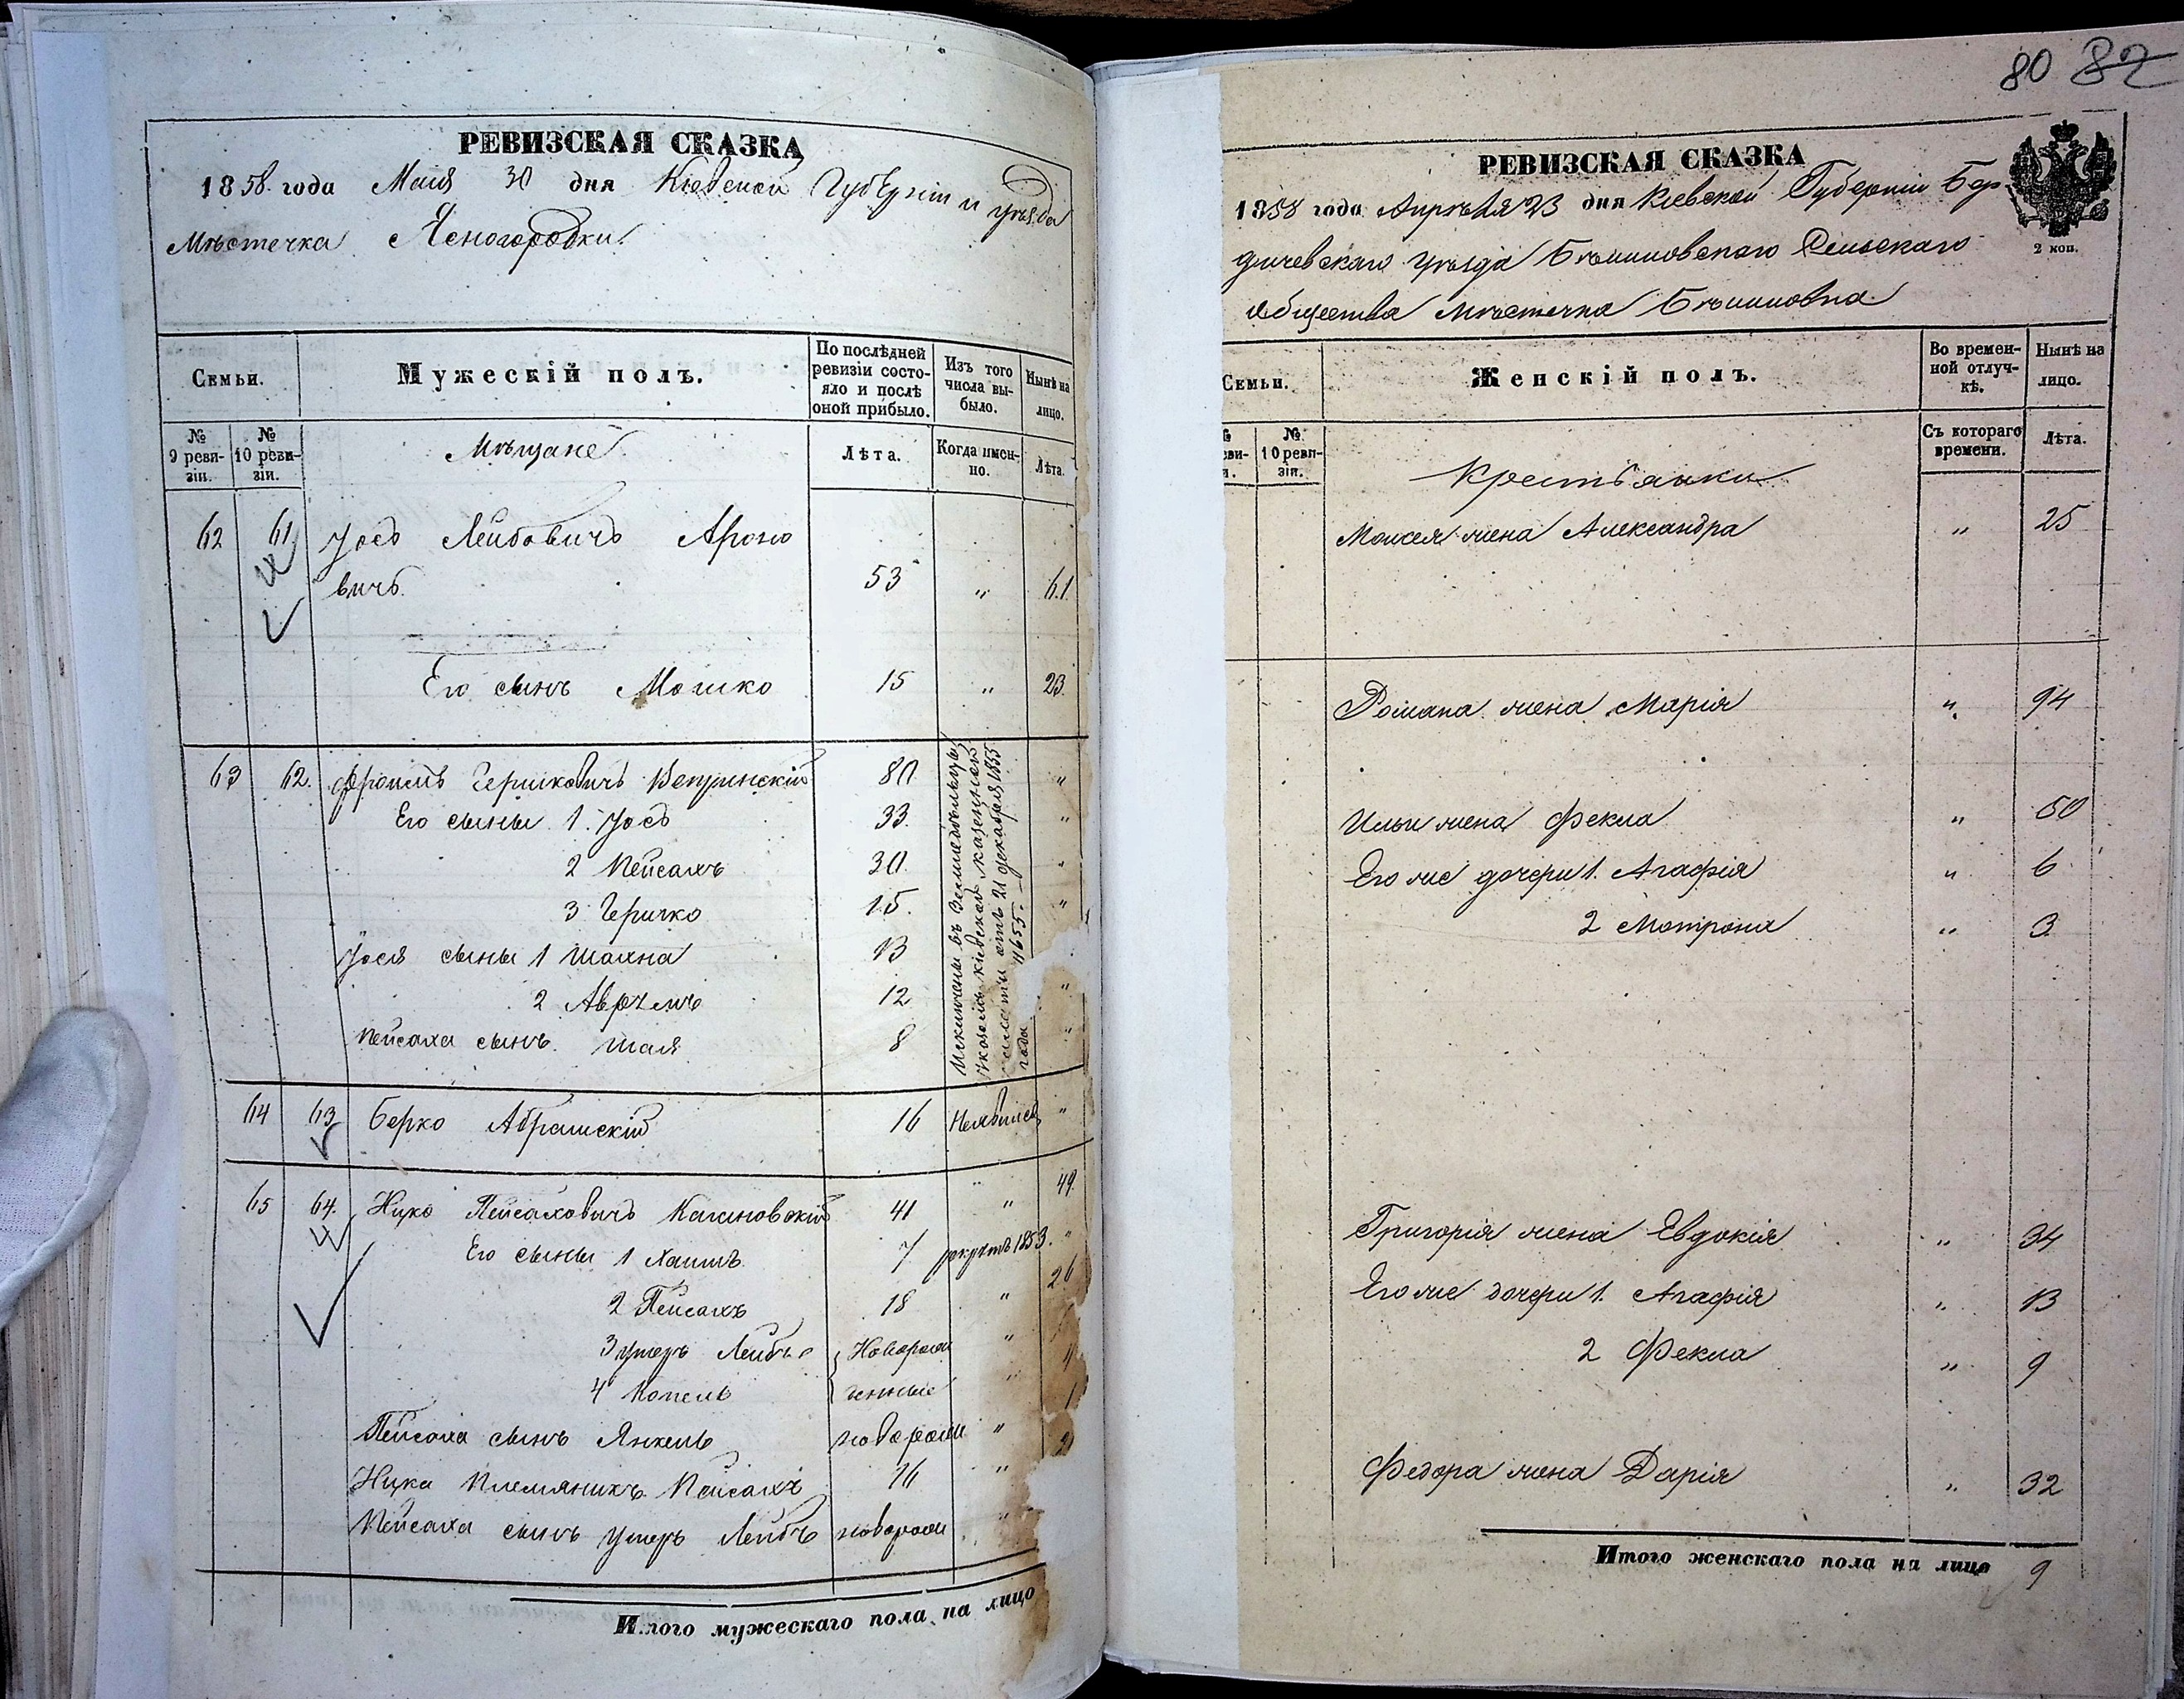 РЕВИЗСКАЯ СКАЗКА
1858. года Маія 30 дня Кіевской Губерніи и уѣзда
Мѣстечка Ясногородки.
Семьи.
Мужескій полъ.
По послѣдней ревизіи состо-
яло и послѣ
оной прибыло.
Изъ того
числа вы-
было.
Нынѣ на
лицо.
№
9 реви-
зіи.
№
10 реви-
зіи.
Мѣщане.
Лѣта.
Когда имен-
но.
Лѣта.
62 61 Іось Лейбовичъ Ароно
вичъ. 53 " 61.
Его сынъ Мошко 15 " 23.
63 62. Фроимъ Гершковичъ 80 "
Его сыны 1. Іось 33. "
2 Пейсахъ 30. "
3 Гершко 15. "
Іося сыны 1 Шахна 13
2 Аврумъ 12 "
Пейсаха сынъ. Шая 8 "
Исключены въ Земледѣльцы
Указомъ Кіевской Казенной
отъ 21 Декабря 1855
года 11655.
64 63 Берко Абрамскій 16 Неявился "
65 64. Ицко Пейсаховичъ 41 " 49.
Его сыны 1 Хаимъ 7 рекрутъ 1853. "
2 Пейсахъ 18 " 26
3 Умеръ Лейбъ Новорож "
4 Копель денные " 1
Пейсаха сынъ Янкель новорож "
Ицка Племяникъ Пейсахъ 16 "
Пейсаха сынъ Умеръ Лейбъ новорож "
Итого мужескаго пола на лицо
80 82
РЕВИЗСКАЯ СКАЗКА
1858 года Апрѣля 23 дня Кіевской Губерніи Бер-
дичевскаго уѣзда Бѣлиловскаго Сельскаго
2 коп.
Общества Мѣстечка Бѣлиловка
Семьи.
Женскій полъ.
Во времен-
ной отлуч-
кѣ.
Нынѣ на
лицо.
№
10 реви-
зіи.
Крестьянки
Съ котораго
времени.
Лѣта.
Моисея жена Александра " 25
Романа жена Марія " 94
Ильи жена Фекла " 50
Его же дочери 1. Агафія " 6
2 Мотрона " 3
Григорія жена Евдокія " 34
Его же дочери 1. Агафія " 13
2 Фекла " 9
Федора жена Дарія " 32
Итого женскаго пола на лицо 9